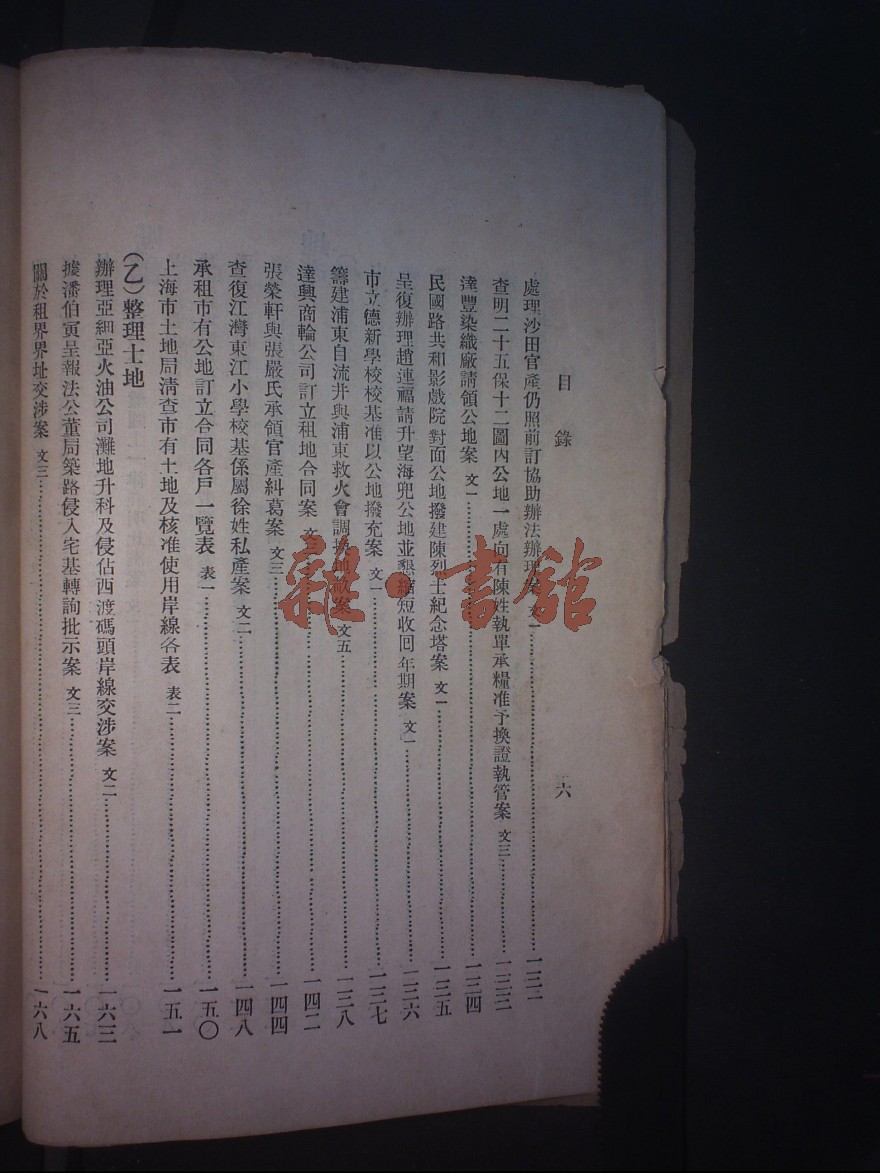 目錄 六
處理沙田官產仍照前訂協助辦法辦理案 文一 一三二
查明二十五保十二圖內公地一處向有陳姓執單承糧准予換證執管案 文三 一三三
達豐染織廠請領公地案 文一 一三四
民國路共和影戲院對面公地撥建陳烈士紀念塔案 文一 一三五
呈復辦理趙連福請升望海兜公地並懇縮短收回年期案 文一 一三六
市立德新學校校基准以公地撥充案 文一 一三七
籌建浦東自流井與浦東救火會調換地畝案 文五 一三八
達興商輪公司訂立租地合同案 文三 一四二
張榮軒與張嚴氏承領官產糾葛案 文三 一四四
查復江灣東江小學校基係屬徐姓私產案 文二 一四八
承租市有公地訂立合同各戶一覽表 表一 一五〇
上海市土地局清查市有土地及核准使用岸線各表 表二 一五一
(乙)整理土地
辦理亞細亞火油公司灘地升科及侵佔西渡碼頭岸線交涉案 文二 一六三
據潘伯寅呈報法公董局築路侵入宅基轉詢批示案 文三 一六五
關於租界界址交涉案 文三 一六八
雜·書館